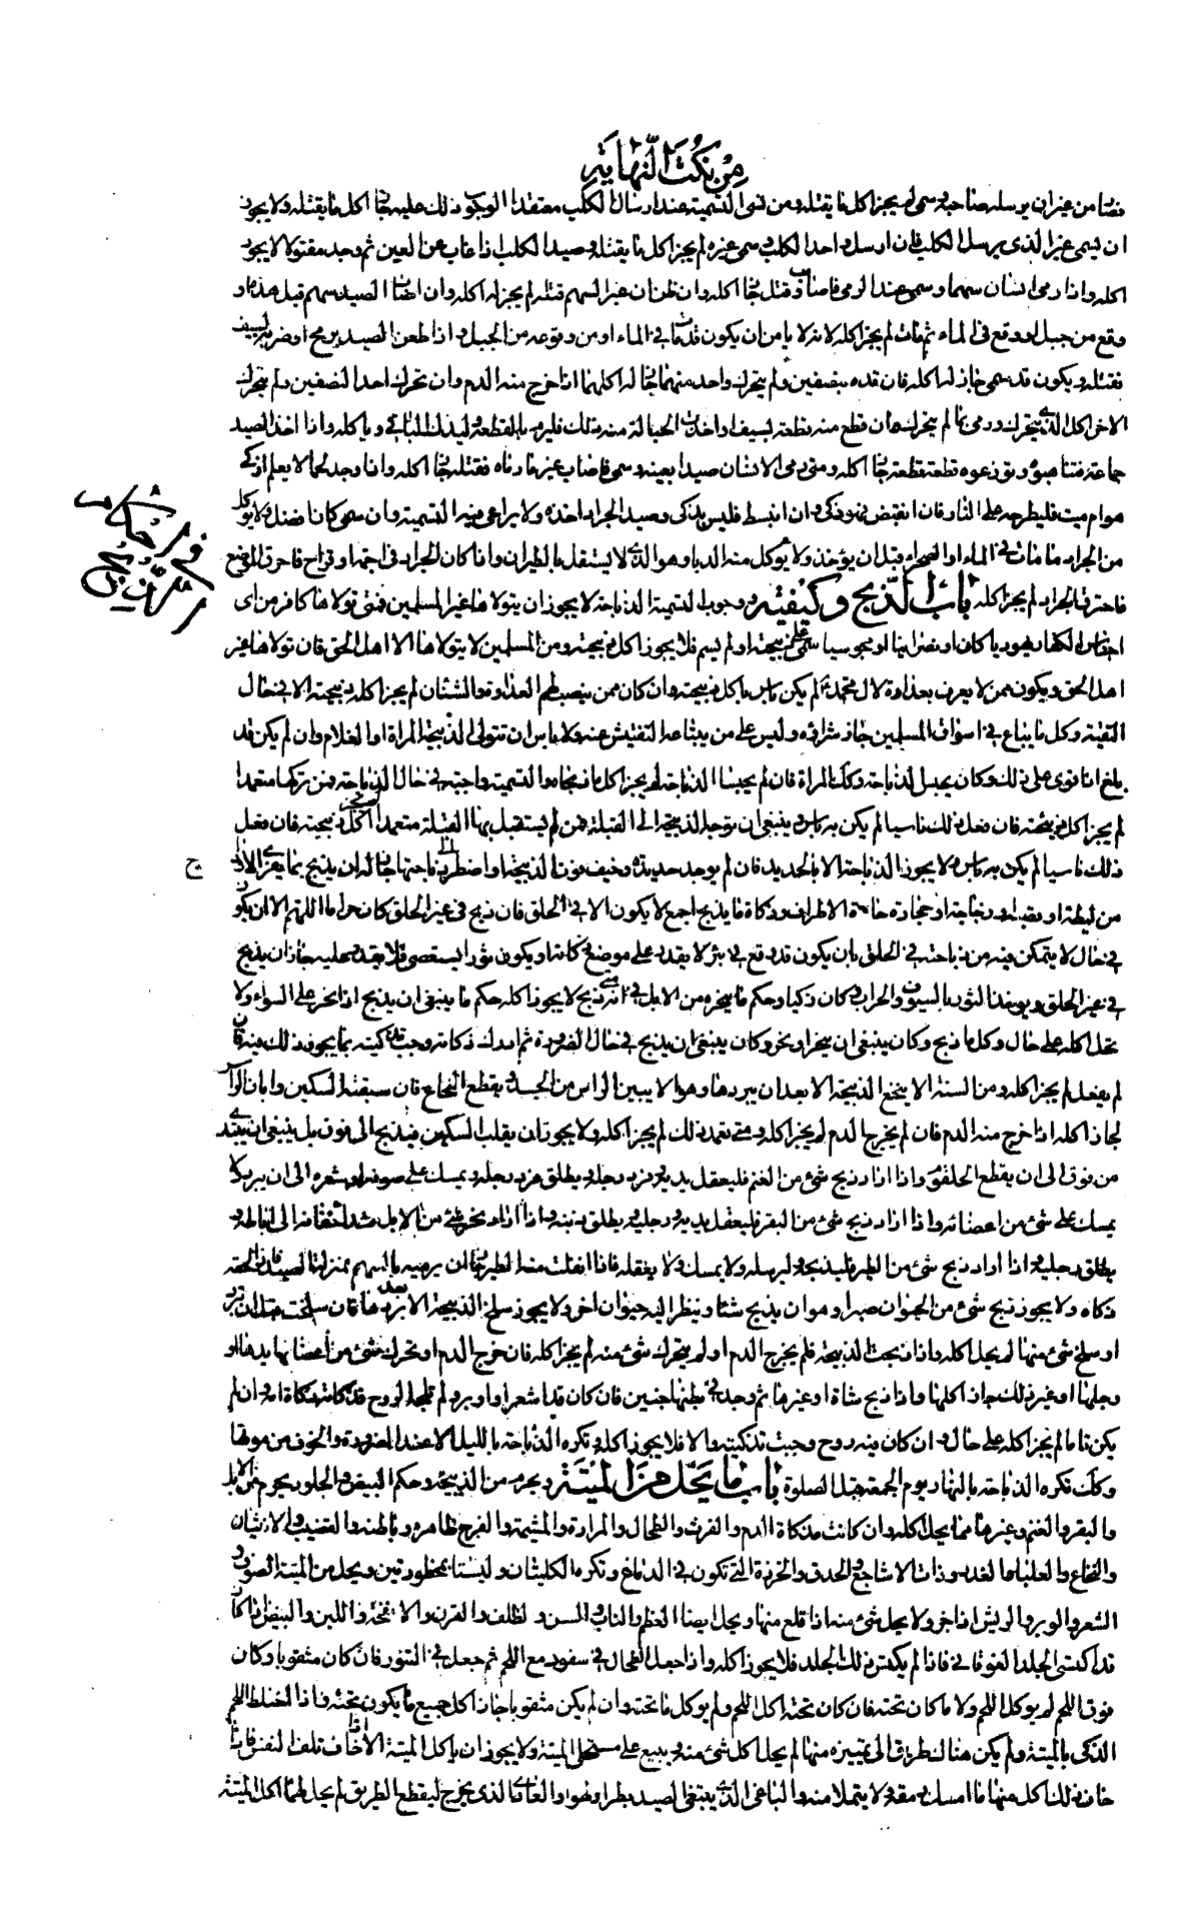 من نكت النهاية
فصا من غير ان يرسله صاحبه وسمى لم يجز اكل ما يقتله ومن نسي التسمية عند ارسال الكلب معتقدا لوجوب ذلك عليه جاز اكل ما يقتله ولا يجوز
ان يسمى غير الذي يرسل الكلب فان ارسل واحد الكلب وسمى غيره لم يجز اكل ما يقتله وصيد الكلب اذا غاب عن العين ثم وجد مقتولا لا يجوز
اكله واذا رمى انسان سهما وسمى عند الرمي فاصاب وقتل جاز اكله وان ظن ان غير السهم قتله لم يجز له اكله وان اصاب الصيد سهم فتدهده او
وقع من جبل او وقع في الماء ثم مات لم يجز اكله لانه لا يامن ان يكون قد مات في الماء او من وقوعه من الجبل واذا طعن الصيد برمح او ضربه بسيف
فقتله ويكون قد سمى جاز له اكله فان قده بنصفين ولم يتحرك واحد منهما جاز له اكلهما اذا خرج منه الدم وان تحرك احد النصفين ولم يتحرك
الاخر اكل الذي يتحرك ورمى بما لم يتحرك وان قطع منه قطعة بسيف او اخذت الحبالة منه ذلك فليرم بالقطعة وليذك الباقي وياكله واذا اخذ الصيد
جماعة فتناهبوه وتوزعوه قطعة قطعة جاز اكله ومتى رمى الانسان صيدا بعينه وسمى فاصاب غير ما رماه فقتله جاز اكله واذا وجد لحما لا يعلم اذكي
هو ام ميت فليطرحه على النار فان انقبض فهو ذكي وان انبسط فليس بذكي وصيد الجراد اخذه ولا يراعى فيه التسمية وان سمى كان افضل ولا يؤكل
من الجراد ما مات في الماء او الصحراء قبل ان يؤخذ ولا يؤكل منه الدبا وهو الذي لا يستقل بالطيران واذا كان الجراد في اجمة او في براح فاحرق الموضع
فاحترق الجراد لم يجز اكله باب الذبح وكيفيته ووجوب التسمية الذباحة لا يجوز ان يتولاها غير المسلمين فمتى تولاها كافر من اي
اجناس الكفار يهوديا كان او نصرانيا او مجوسيا سمى على ذبيحته او لم يسم فلا يجوز اكل ذبيحته ومن المسلمين لا يتولاها الا اهل الحق فان تولاها غير
اهل الحق ويكون ممن لا يعرف بعداوة لال محمد لم يكن باس باكل ذبيحته وان كان ممن ينصب لهم العداوة والشنان لم يجز اكل ذبيحته الا في حال
التقية وكل ما يباع في اسواق المسلمين جاز شراؤه وليس على من يبتاعه التفتيش عنه ولا باس ان تتولى الذبيحة المراة او الغلام وان لم يكن قد
بلغ اذا قوي على ذلك وكان يحسن الذباحة وكذلك المراة فان لم يحسنا الذباحة لم يجز اكل ما ذبحاه والتسمية واجبة في حال الذباحة فمن تركها متعمدا
لم يجز اكل ذبيحته فان فعل ذلك ناسيا لم يكن به باس وينبغي ان توجه الذبيحة الى القبلة فمن لم يستقبل بها القبلة متعمدا لم يجز اكل ذبيحته فان فعل
ذلك ناسيا لم يكن به باس ولا يجوز الذباحة الا بالحديد فان لم يوجد حديد وخيف فوت الذبيحة او اضطر الى ذباحتها جاز له ان يذبح بما يفري الاوداج
من ليطة او قصبة او زجاجة او حجارة حادة الاطراف وذكاة ما يذبح اجمع لا يكون الا في الحلق فان ذبح في غير الحلق كان حراما اللهم الا ان يكون
في حال لا يتمكن فيه من ذباحته في الحلق بان يكون قد وقع في بئر لا يقدر على موضع ذكاته او يكون ثورا يستعصي فلا يقدر عليه جاز ان يذبح
في غير الحلق ويؤخذ الثور بالسيوف والحراب وكان ذكيا وحكم ما ينحره من الابل في انه متى ذبح لا يجوز اكله حكم ما ينبغي ان يذبح اذا نحر على السواء ولا
يحل اكله على حال وكل ما ذبح وكان ينبغي ان ينحر او نحر وكان ينبغي ان يذبح في حال الضرورة ثم ادرك ذكاته وجب تذكيته بما يجوز ذلك فيه فان
لم يفعل لم يجز اكله ومن السنة الا ينخع الذبيحة الا بعد ان يبردها وهو الا يبين الراس من الجسد ويقطع النخاع فان سبقته السكين وابان الراس
جاز اكله اذا خرج منه الدم فان لم يخرج الدم لم يجز اكله ومتى تعمد ذلك لم يجز اكله ولا يجوز ان يقلب السكين فيذبح الى فوق بل ينبغي ان يبتدي
من فوق الى ان يقطع الحلقوم واذا اراد ذبح شيء من الغنم فليعقل يديه وفرد رجله ويطلق فرد رجله ويمسك على صوفه او شعره الى ان يبرد ولا
يمسك على شيء من اعضائه واذا اراد ذبح شيء من البقر فليعقل يديه ورجليه ويطلق ذنبه واذا اراد نحر شيء من الابل شد اخفافه الى اباطه و
يطلق رجليه واذا اراد ذبح شيء من الطير فليذبحه وليرسله ولا يمسكه ولا يعقله فاذا انفلت منه الطير جاز ان يرميه بالسهم بمنزلة الصيد فاذا لحقه
ذكاه ولا يجوز ذبح شيء من الحيوان صبرا وهو ان يذبح شيئا وينظر اليه حيوان اخر ولا يجوز سلخ الذبيحة الا بعد بردها فان سلخت قبل ان تبرد
او سلخ شيء منها لم يحل اكله واذا ذبحت الذبيحة فلم يخرج الدم او لم يتحرك شيء منه لم يجز اكله فان خرج الدم او تحرك شيء من اعضائها يدها او
رجلها او غير ذلك جاز اكلها واذا ذبح شاة او غيرها ثم وجد في بطنها جنين فان كان قد اشعر او اوبر ولم تلجه الروح فذكاته ذكاة امه وان لم
يكن تاما لم يجز اكله على حال وان كان فيه روح وجبت تذكيته والا فلا يجوز اكله وتكره الذباحة بالليل الا عند الضرورة والخوف من موتها
وكذلك تكره الذباحة بالنهار يوم الجمعة قبل الصلوة باب ما يحل من الميتة ويحرم من الذبيحة وحكم البيض والجلود يحرم من الابل
والبقر والغنم وغيرها مما يحل اكله وان كانت مذكاة الدم والفرث والطحال والمرارة والمشيمة والفرج ظاهره وباطنه والقضيب والانثيان
والنخاع والعلباء والغدد وذات الاشاجع والحدق والخرزة التي تكون في الدماغ وتكره الكليتان وليستا بمحظورتين ويحل من الميتة الصوف و
الشعر والوبر والريش اذا جز ولا يحل شيء منه اذا قلع منها ويحل ايضا العظم والناب والسن والظلف والقرن والانفحة واللبن والبيض اذا كان
قد اكتسى الجلد الفوقاني فاذا لم يكتس ذلك الجلد فلا يجوز اكله واذا جعل الطحال في سفود مع اللحم ثم جعل في التنور فان كان مثقوبا وكان
فوق اللحم لم يؤكل اللحم ولا ما كان تحته فان كان تحته اكل اللحم ولم يؤكل ما تحته وان لم يكن مثقوبا جاز اكل جميع ما يكون تحته فاذا اختلط اللحم
الذكي بالميتة ولم يكن هناك طريق الى تمييزه منها لم يحل اكل شيء منه وبيع على مستحلي الميتة ولا يجوز ان ياكل الميتة الا اذا خاف تلف النفس فاذا
خاف ذلك اكل منها ما امسك رمقه ولا يتملا منه والباغي الذي يبتغي الصيد بطرا ولهوا والعادي الذي يخرج ليقطع الطريق لم يحل لهما اكل الميتة
ج